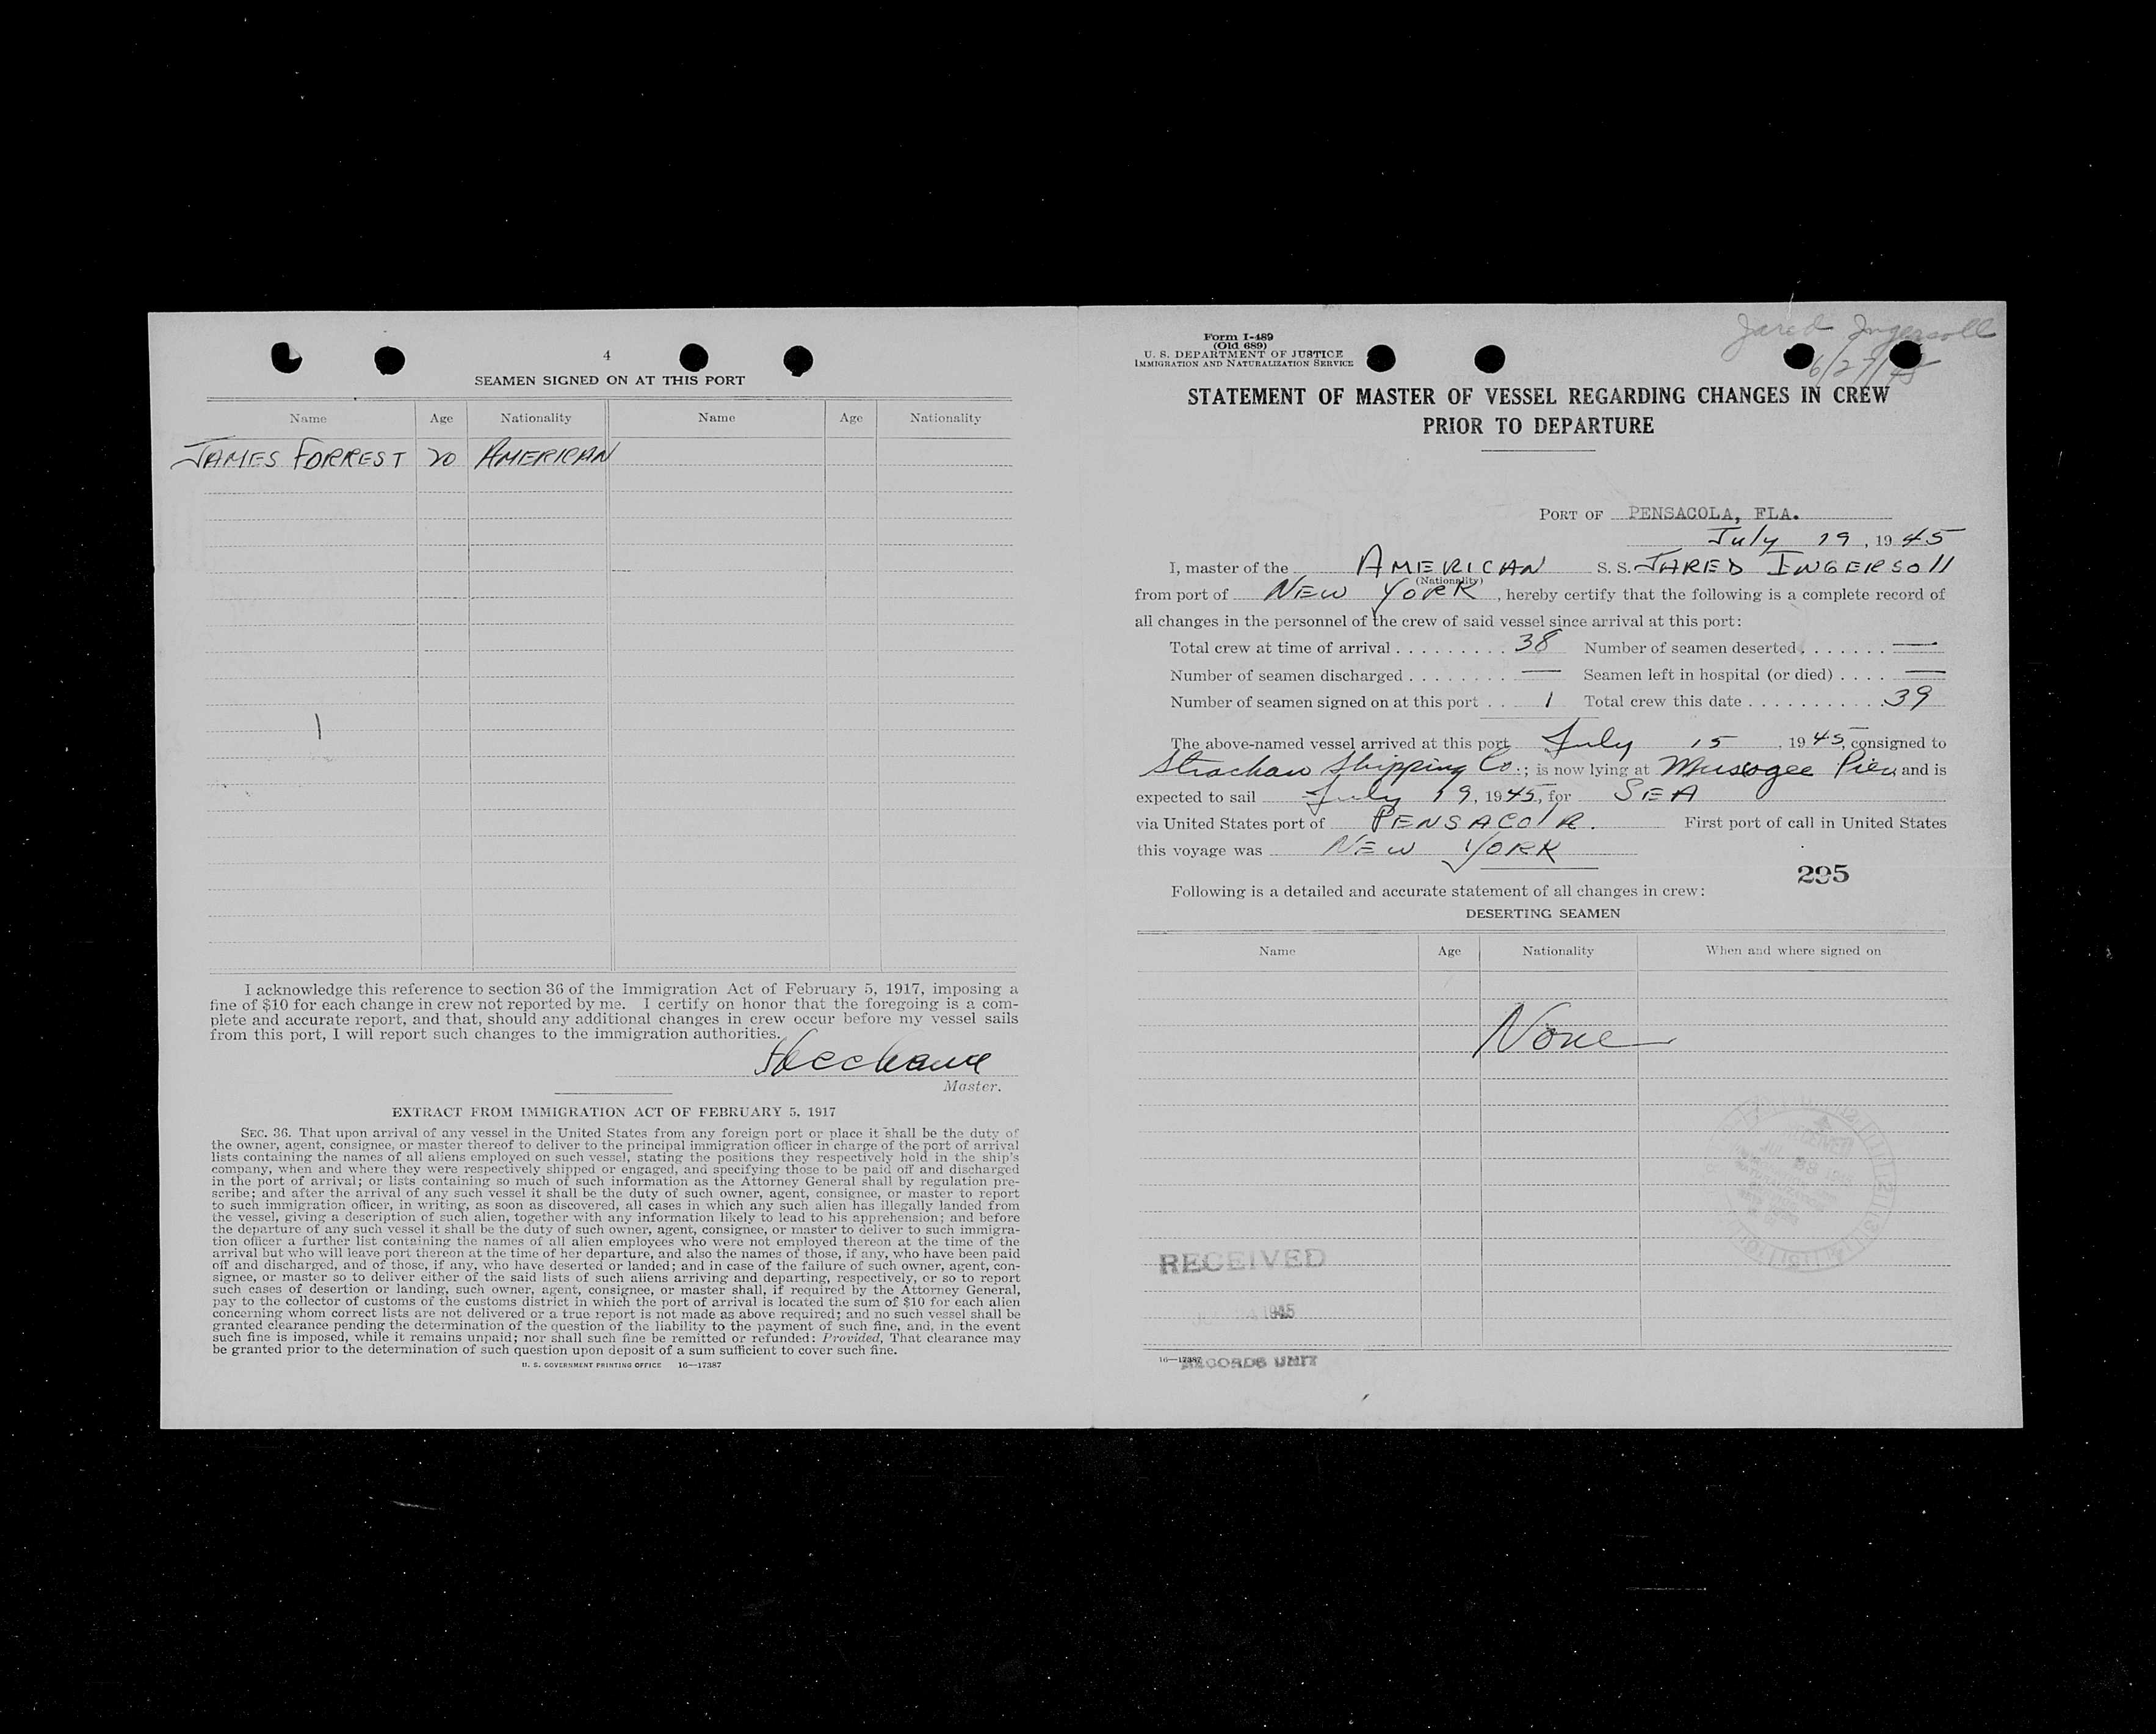 4
SEAMEN SIGNED ON AT THIS PORT
Name Age Nationality Name Age Nationality
JAMES FORREST 20 AMERICAN
1
I acknowledge this reference to section 36 of the Immigration Act of February 5, 1917, imposing a
fine of $10 for each change in crew not reported by me. I certify on honor that the foregoing is a com-
plete and accurate report, and that, should any additional changes in crew occur before my vessel sails
from this port, I will report such changes to the immigration authorities.
Master.
EXTRACT FROM IMMIGRATION ACT OF FEBRUARY 5, 1917
SEC. 36. That upon arrival of any vessel in the United States from any foreign port or place it shall be the duty of
the owner, agent, consignee, or master thereof to deliver to the principal immigration officer in charge of the port of arrival
lists containing the names of all aliens employed on such vessel, stating the positions they respectively hold in the ship's
company, when and where they were respectively shipped or engaged, and specifying those to be paid off and discharged
in the port of arrival; or lists containing so much of such information as the Attorney General shall by regulation pre-
scribe; and after the arrival of any such vessel it shall be the duty of such owner, agent, consignee, or master to report
to such immigration officer, in writing, as soon as discovered, all cases in which any such alien has illegally landed from
the vessel, giving a description of such alien, together with any information likely to lead to his apprehension; and before
the departure of any such vessel it shall be the duty of such owner, agent, consignee, or master to deliver to such immigra-
tion officer a further list containing the names of all alien employees who were not employed thereon at the time of the
arrival but who will leave port thereon at the time of her departure, and also the names of those, if any, who have been paid
off and discharged, and of those, if any, who have deserted or landed; and in case of the failure of such owner, agent, con-
signee, or master so to deliver either of the said lists of such aliens arriving and departing, respectively, or so to report
such cases of desertion or landing, such owner, agent, consignee, or master shall, if required by the Attorney General,
pay to the collector of customs of the customs district in which the port of arrival is located the sum of $10 for each alien
concerning whom correct lists are not delivered or a true report is not made as above required; and no such vessel shall be
granted clearance pending the determination of the question of the liability to the payment of such fine, and, in the event
such fine is imposed, while it remains unpaid; nor shall such fine be remitted or refunded: Provided, That clearance may
be granted prior to the determination of such question upon deposit of a sum sufficient to cover such fine.
U. S. GOVERNMENT PRINTING OFFICE 16—17387
Jared Ingersoll
6/27/45
Form I-489
(Old 689)
U. S. DEPARTMENT OF JUSTICE
IMMIGRATION AND NATURALIZATION SERVICE
STATEMENT OF MASTER OF VESSEL REGARDING CHANGES IN CREW
PRIOR TO DEPARTURE
PORT OF PENSACOLA, FLA.
July 19, 1945
I, master of the AMERICAN S. S. JARED INGERSOll
(Nationality)
from port of NEW YORK, hereby certify that the following is a complete record of
all changes in the personnel of the crew of said vessel since arrival at this port:
Total crew at time of arrival . . . . . . . . . 38 Number of seamen deserted . . . . . . . —
Number of seamen discharged . . . . . . . . — Seamen left in hospital (or died) . . . . —
Number of seamen signed on at this port . . 1 Total crew this date . . . . . . . . . . . 39
The above-named vessel arrived at this port July 15, 1945, consigned to
Strachan Shipping Co.; is now lying at Muscogee Pier and is
expected to sail July 19, 1945, for SEA
via United States port of PENSACOLA. First port of call in United States
this voyage was NEW YORK
295
Following is a detailed and accurate statement of all changes in crew:
DESERTING SEAMEN
Name Age Nationality When and where signed on
None
RECEIVED
JUL 28 1945
RECEIVED
1945
16—17387
RECORDS UNIT